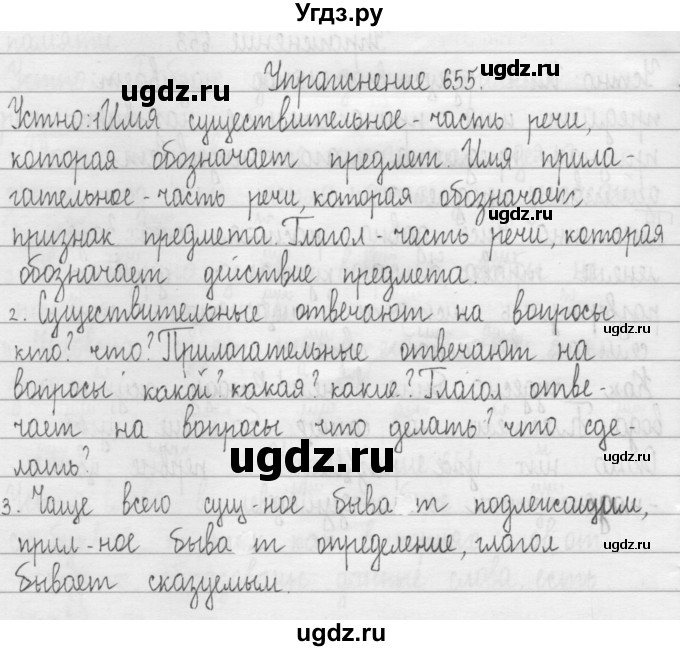 Угдз.ру
Упражнение 655.
Устно: 1 Имя существительное - часть речи,
которая обозначает предмет. Имя прила-
гательное - часть речи, которая обозначает
признак предмета. Глагол часть речи, которая
обозначает действие предмета.
2. Существительные отвечают на вопросы
кто? что? Прилагательные отвечают на
вопросы какой? какая? какие? Глагол отве-
чает на вопросы что делать? что сде-
лать?
3. Чаще всего сущ-ное быва т подлежащим,
прил-ное быва т определение, глагол
бывает сказуемым.
ugdz.ru
ugdz.ru
ugdz.ru
ugdz.ru
ugdz.ru
ugdz.ru
ugdz.ru
ugdz.ru
ugdz.ru
ugdz.ru